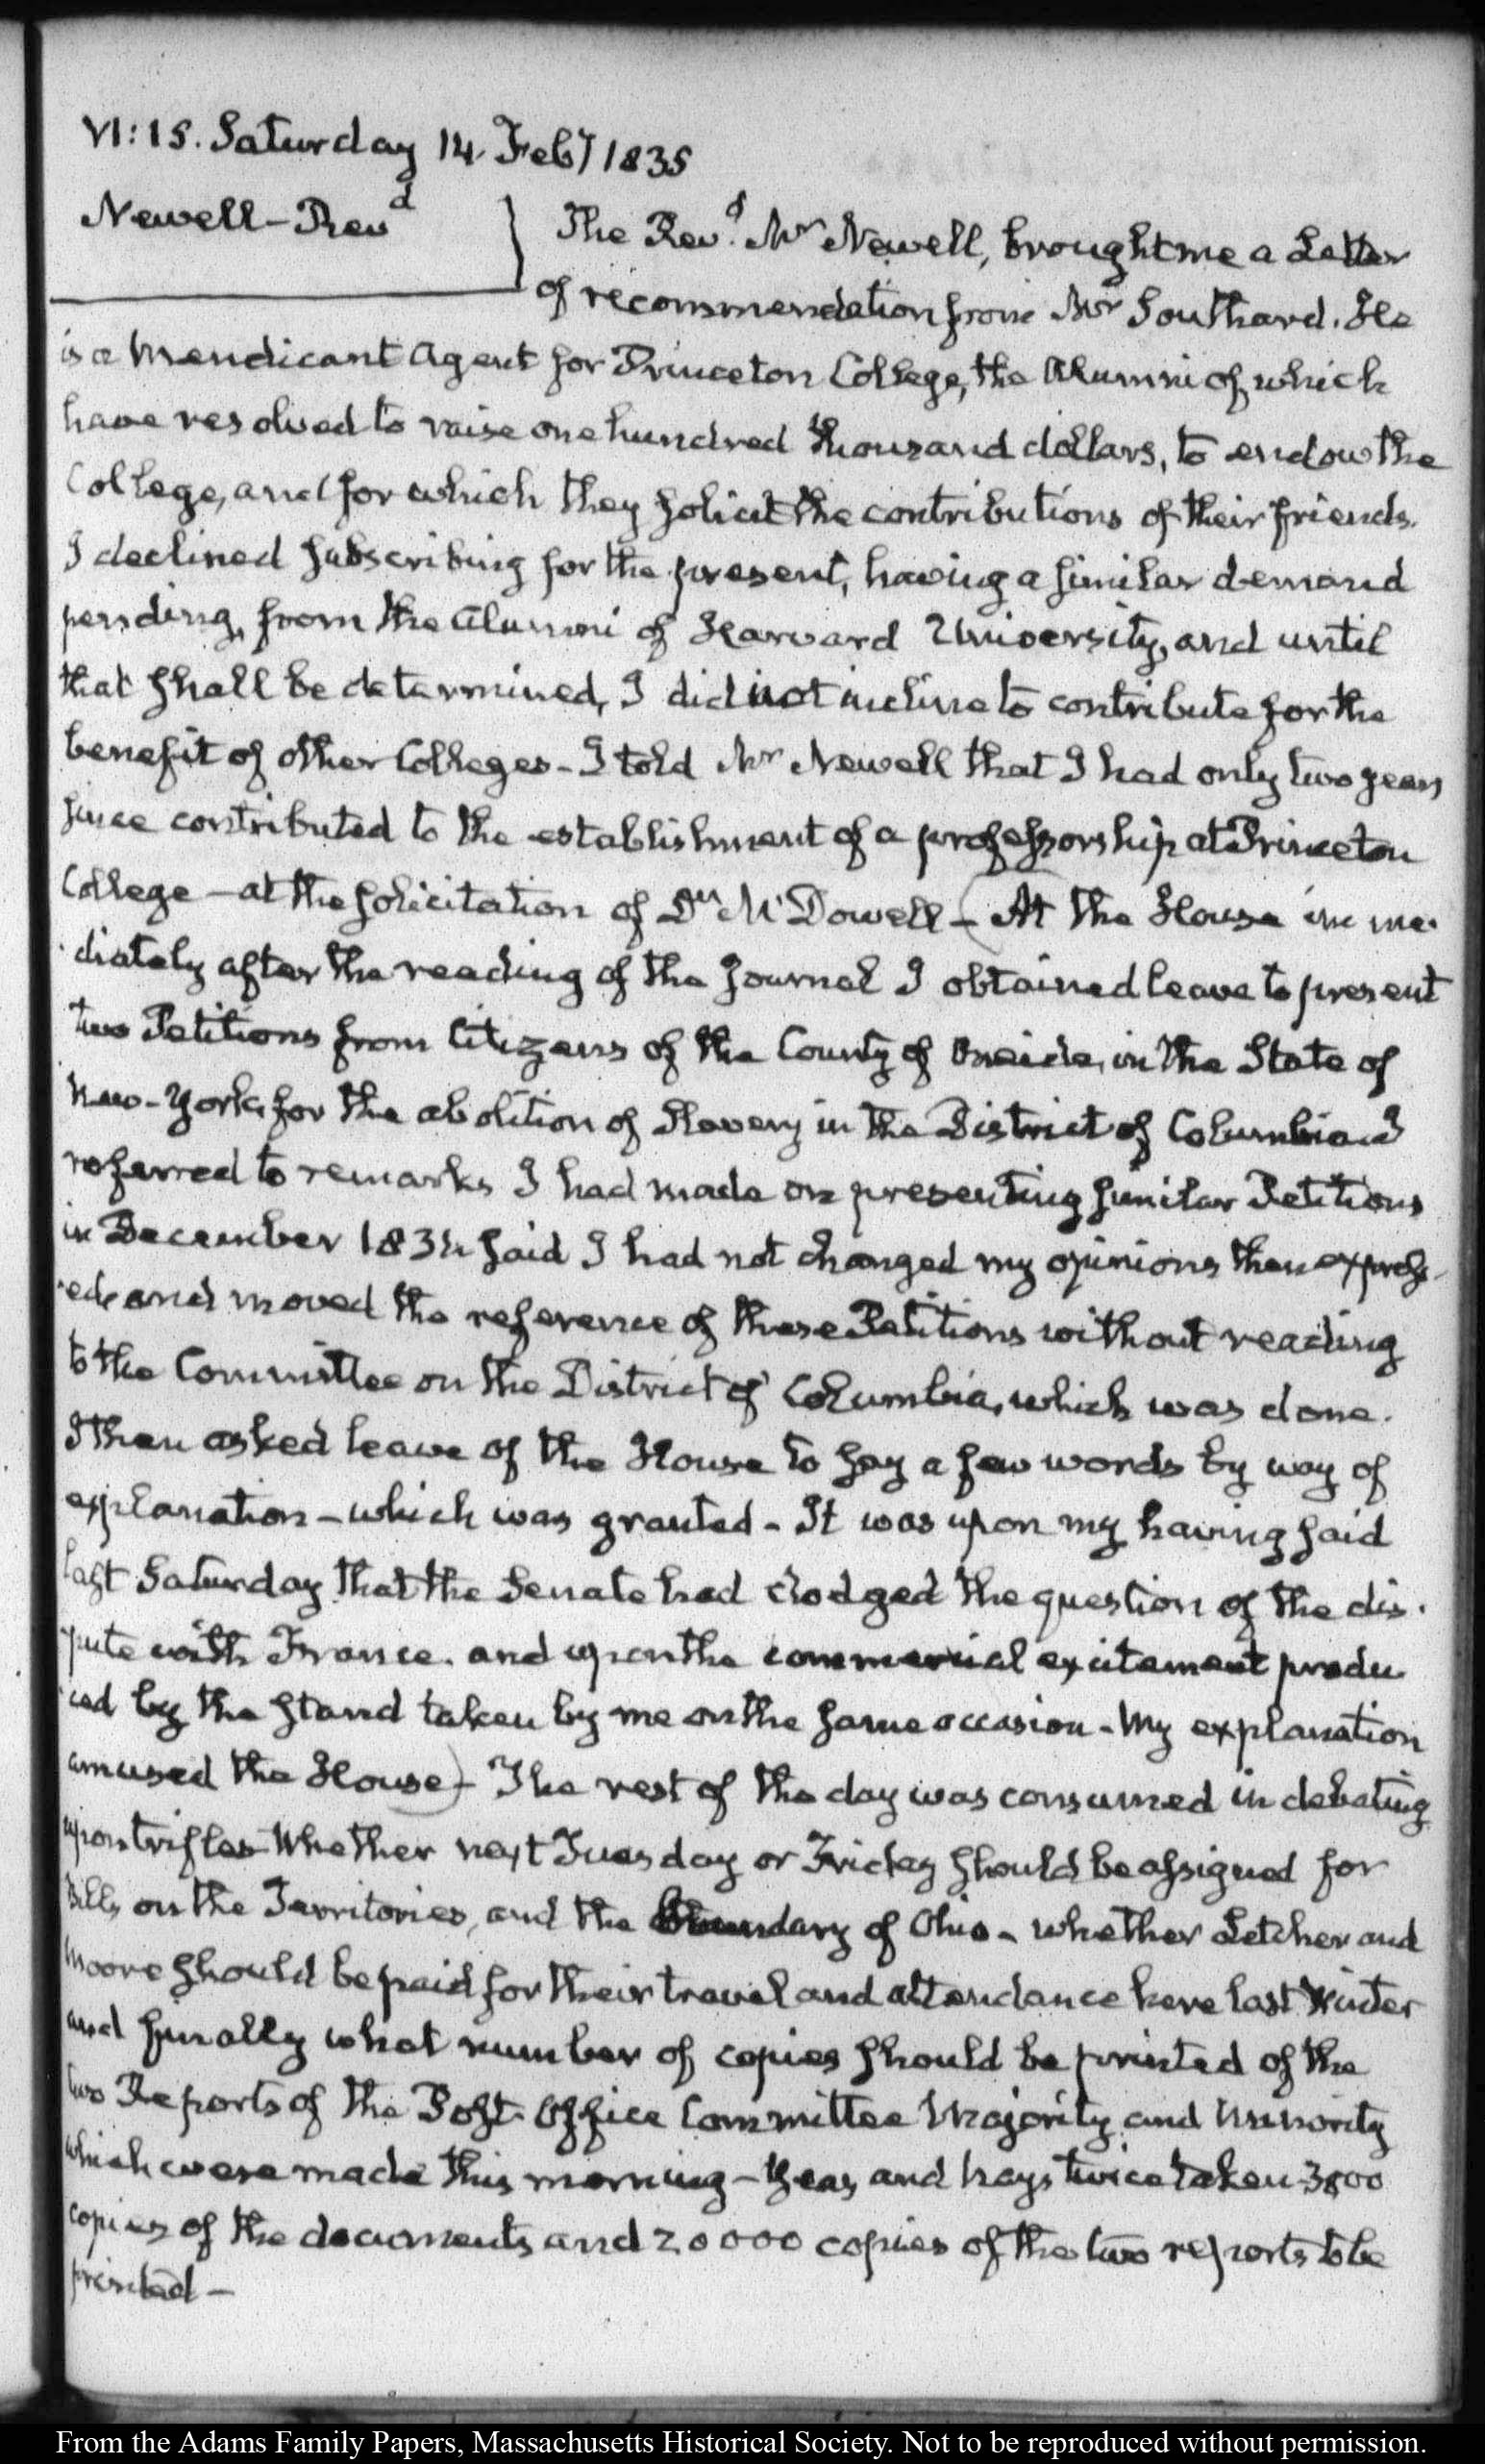 VI:15. Saturday 14. Feby 1835
Newell – Revd
The Revd. Mr Newell, brought me a Letter
of recommendation from Mr Southard. He
is a mendicant Agent for Princeton College, the Alumni of which
have resolved to raise one hundred thousand dollars, to endow the
College, and for which they solicit the contributions of their friends.
I declined subscribing for the present, having a similar demand
pending, from the Alumni of Harvard University, and until
that shall be determined, I did not incline to contribute for the
benefit of other Colleges – I told Mr Newell that I had only two years
since contributed to the establishment of a professorship at Princeton
College – at the solicitation of Dr McDowell – (At the House imme-
diately after the reading of the Journal I obtained leave to present
two Petitions from Citizens of the County of Oneida, in the State of
New-York, for the abolition of Slavery in the District of Columbia – I
referred to remarks I had made on presenting similar Petitions
in December 1831, said I had not changed my opinions then express-
ed, and moved the reference of these Petitions without reading
to the Committee on the District of Columbia, which was done.
I then asked leave of the House to say a few words by way of
explanation – which was granted – It was upon my having said
last Saturday that the Senate had dodged the question of the dis-
pute with France. and upon the commercial excitement produ
ced by the stand taken by me on the same occasion – My explanation
amused the House) – The rest of the day was consumed in debating
upon trifles – Whether next Tuesday or Friday should be assigned for
Bills on the Territories, and the Boundary of Ohio – whether Letcher and
Moore should be paid for their travel and attendance here last Winter
and finally what number of copies should be printed of the
two Reports of the Post-Office Committee Majority and Minority
which were made this morning – Yeas and Nays twice taken 3000
copies of the documents and 20000 copies of the two reports to be
printed –
From the Adams Family Papers, Massachusetts Historical Society. Not to be reproduced without permission.